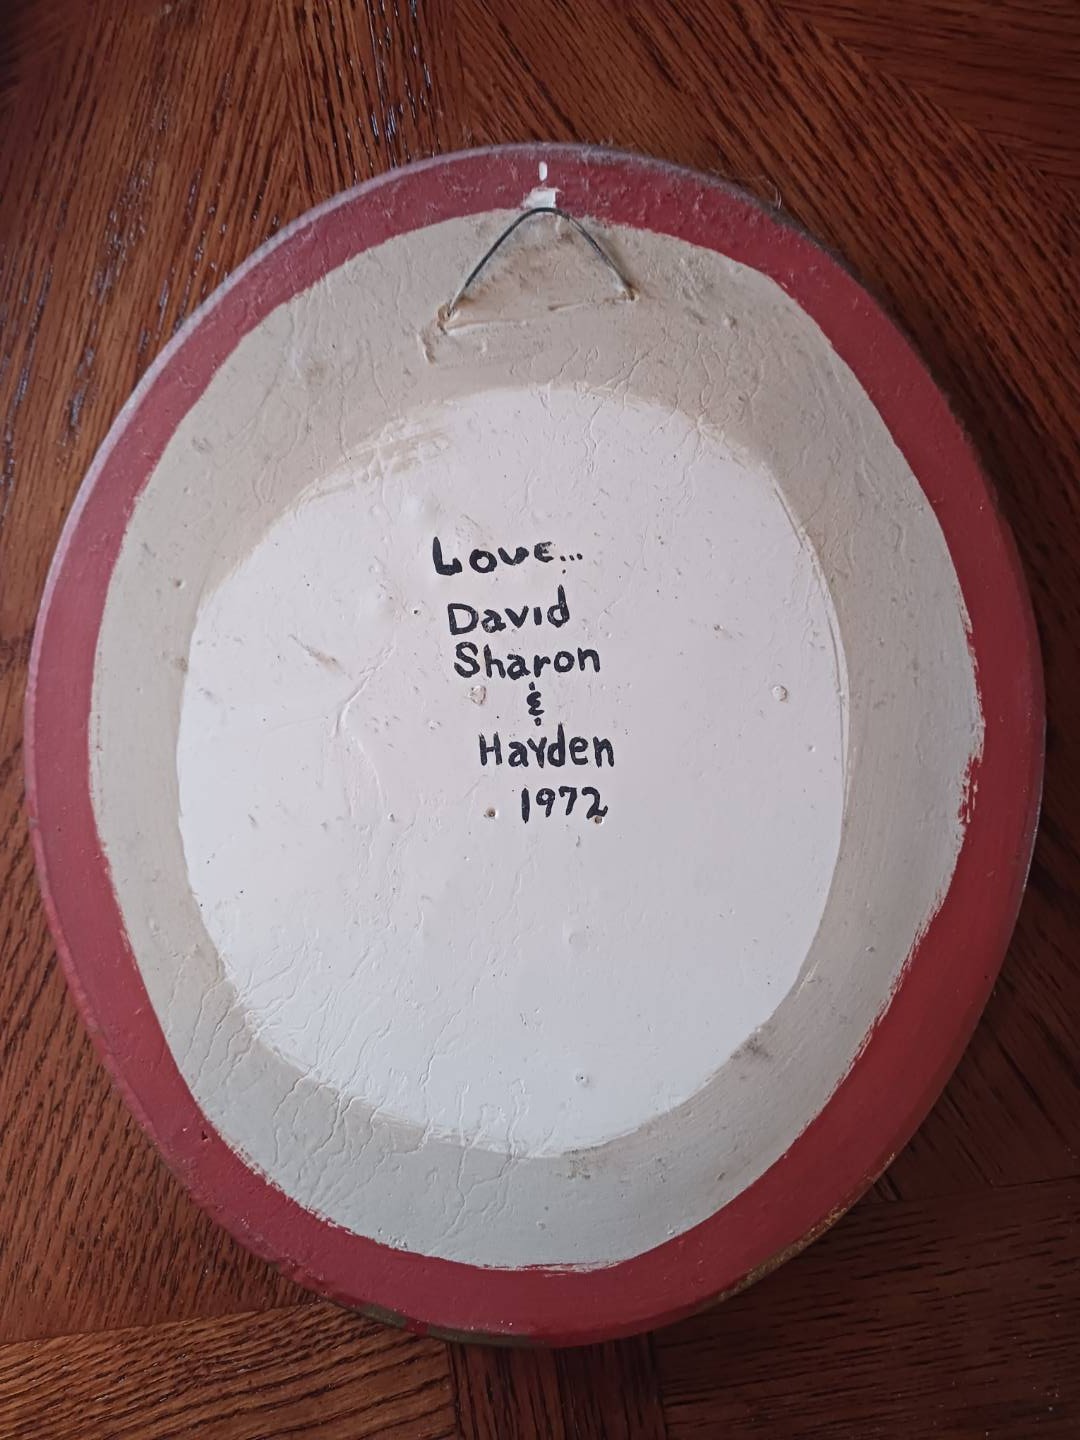 Love...
David
Sharon
&
Hayden
1972